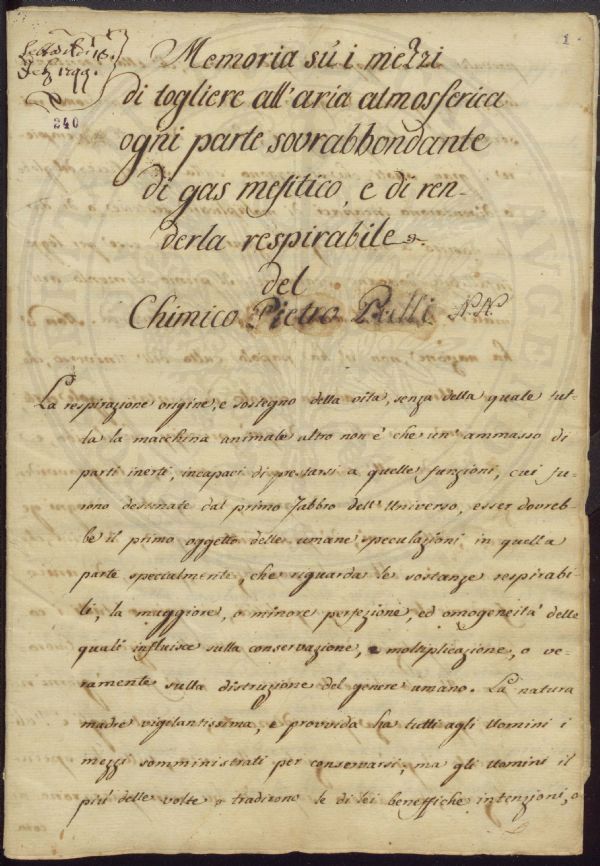 Letta il dì 18.
Feb. 1799.
240
1.
Memoria sù i mezzi
di togliere all'aria atmosferica
ogni parte sovrabbondante
di gas mefitico, e di ren-
derla respirabile
del
Chimico Pietro Pulli N.N.
La respirazione origine, e sostegno della vita, senza della quale tut-
ta la macchina animale altro non è che un' ammasso di
parti inerti, incapaci di prestarsi a quelle funzioni, cui fu-
rono destinate dal primo Fabbro dell'Universo, esser dovreb-
be il primo oggetto delle umane speculazioni in quella
parte specialmente, che riguarda le sostanze respirabi-
li, la maggiore, o minore perfezione, ed omogeneità delle
quali influisce sulla conservazione, e moltiplicazione, o ve-
ramente sulla distruzione del genere umano. La natura
madre vigilantissima, e provvida ha tutti agli Uomini i
mezzi somministrati per conservarsi, ma gli Uomini il
più delle volte o tradirono le di lei beneffiche intenzioni, o